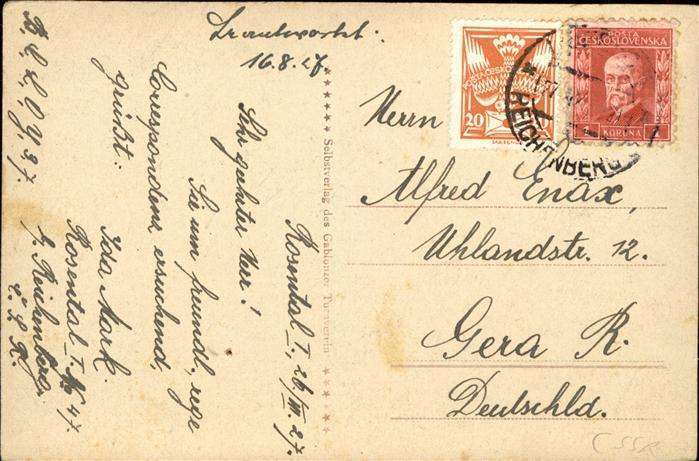 Beantwortet.
16.8.27.
Rosental I, 26/VII. 27.
Sehr geehrter Herr!
Sie um freundl. rege
Correspondenz ersuchend,
grüßt:
Ida Mark.
Rosental I. No 47.
b. Reichenberg
Č. S. R.
Selbstverlag des Gablonzer Turnverein
POŠTA ČESKO
20
POŠTA
ČESKOSLOVENSKA
1 KORUNA 1
REICHENBERG
Herrn
Alfred Enax,
Uhlandstr. 12.
Gera R.
Deutschld.
CSSR